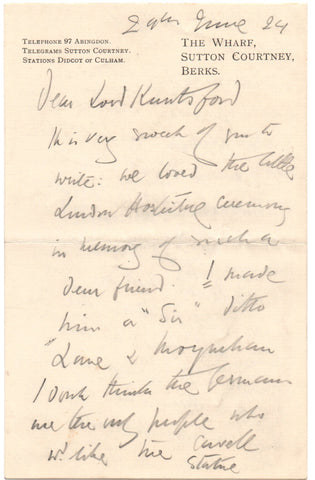 29th June 24
TELEPHONE 97 ABINGDON.
TELEGRAMS SUTTON COURTNEY.
STATIONS DIDCOT OR CULHAM.
THE WHARF,
SUTTON COURTNEY,
BERKS.
Dear Lord Knutsford
this is very sweet of you to
write: we loved the little
London Hospital ceremony
in memory of such a
dear friend. I made
him a "Sir" ditto
"Lane & Moynihan
I don't think the Germans
are the only people who
wd. like the Cavell
Statue